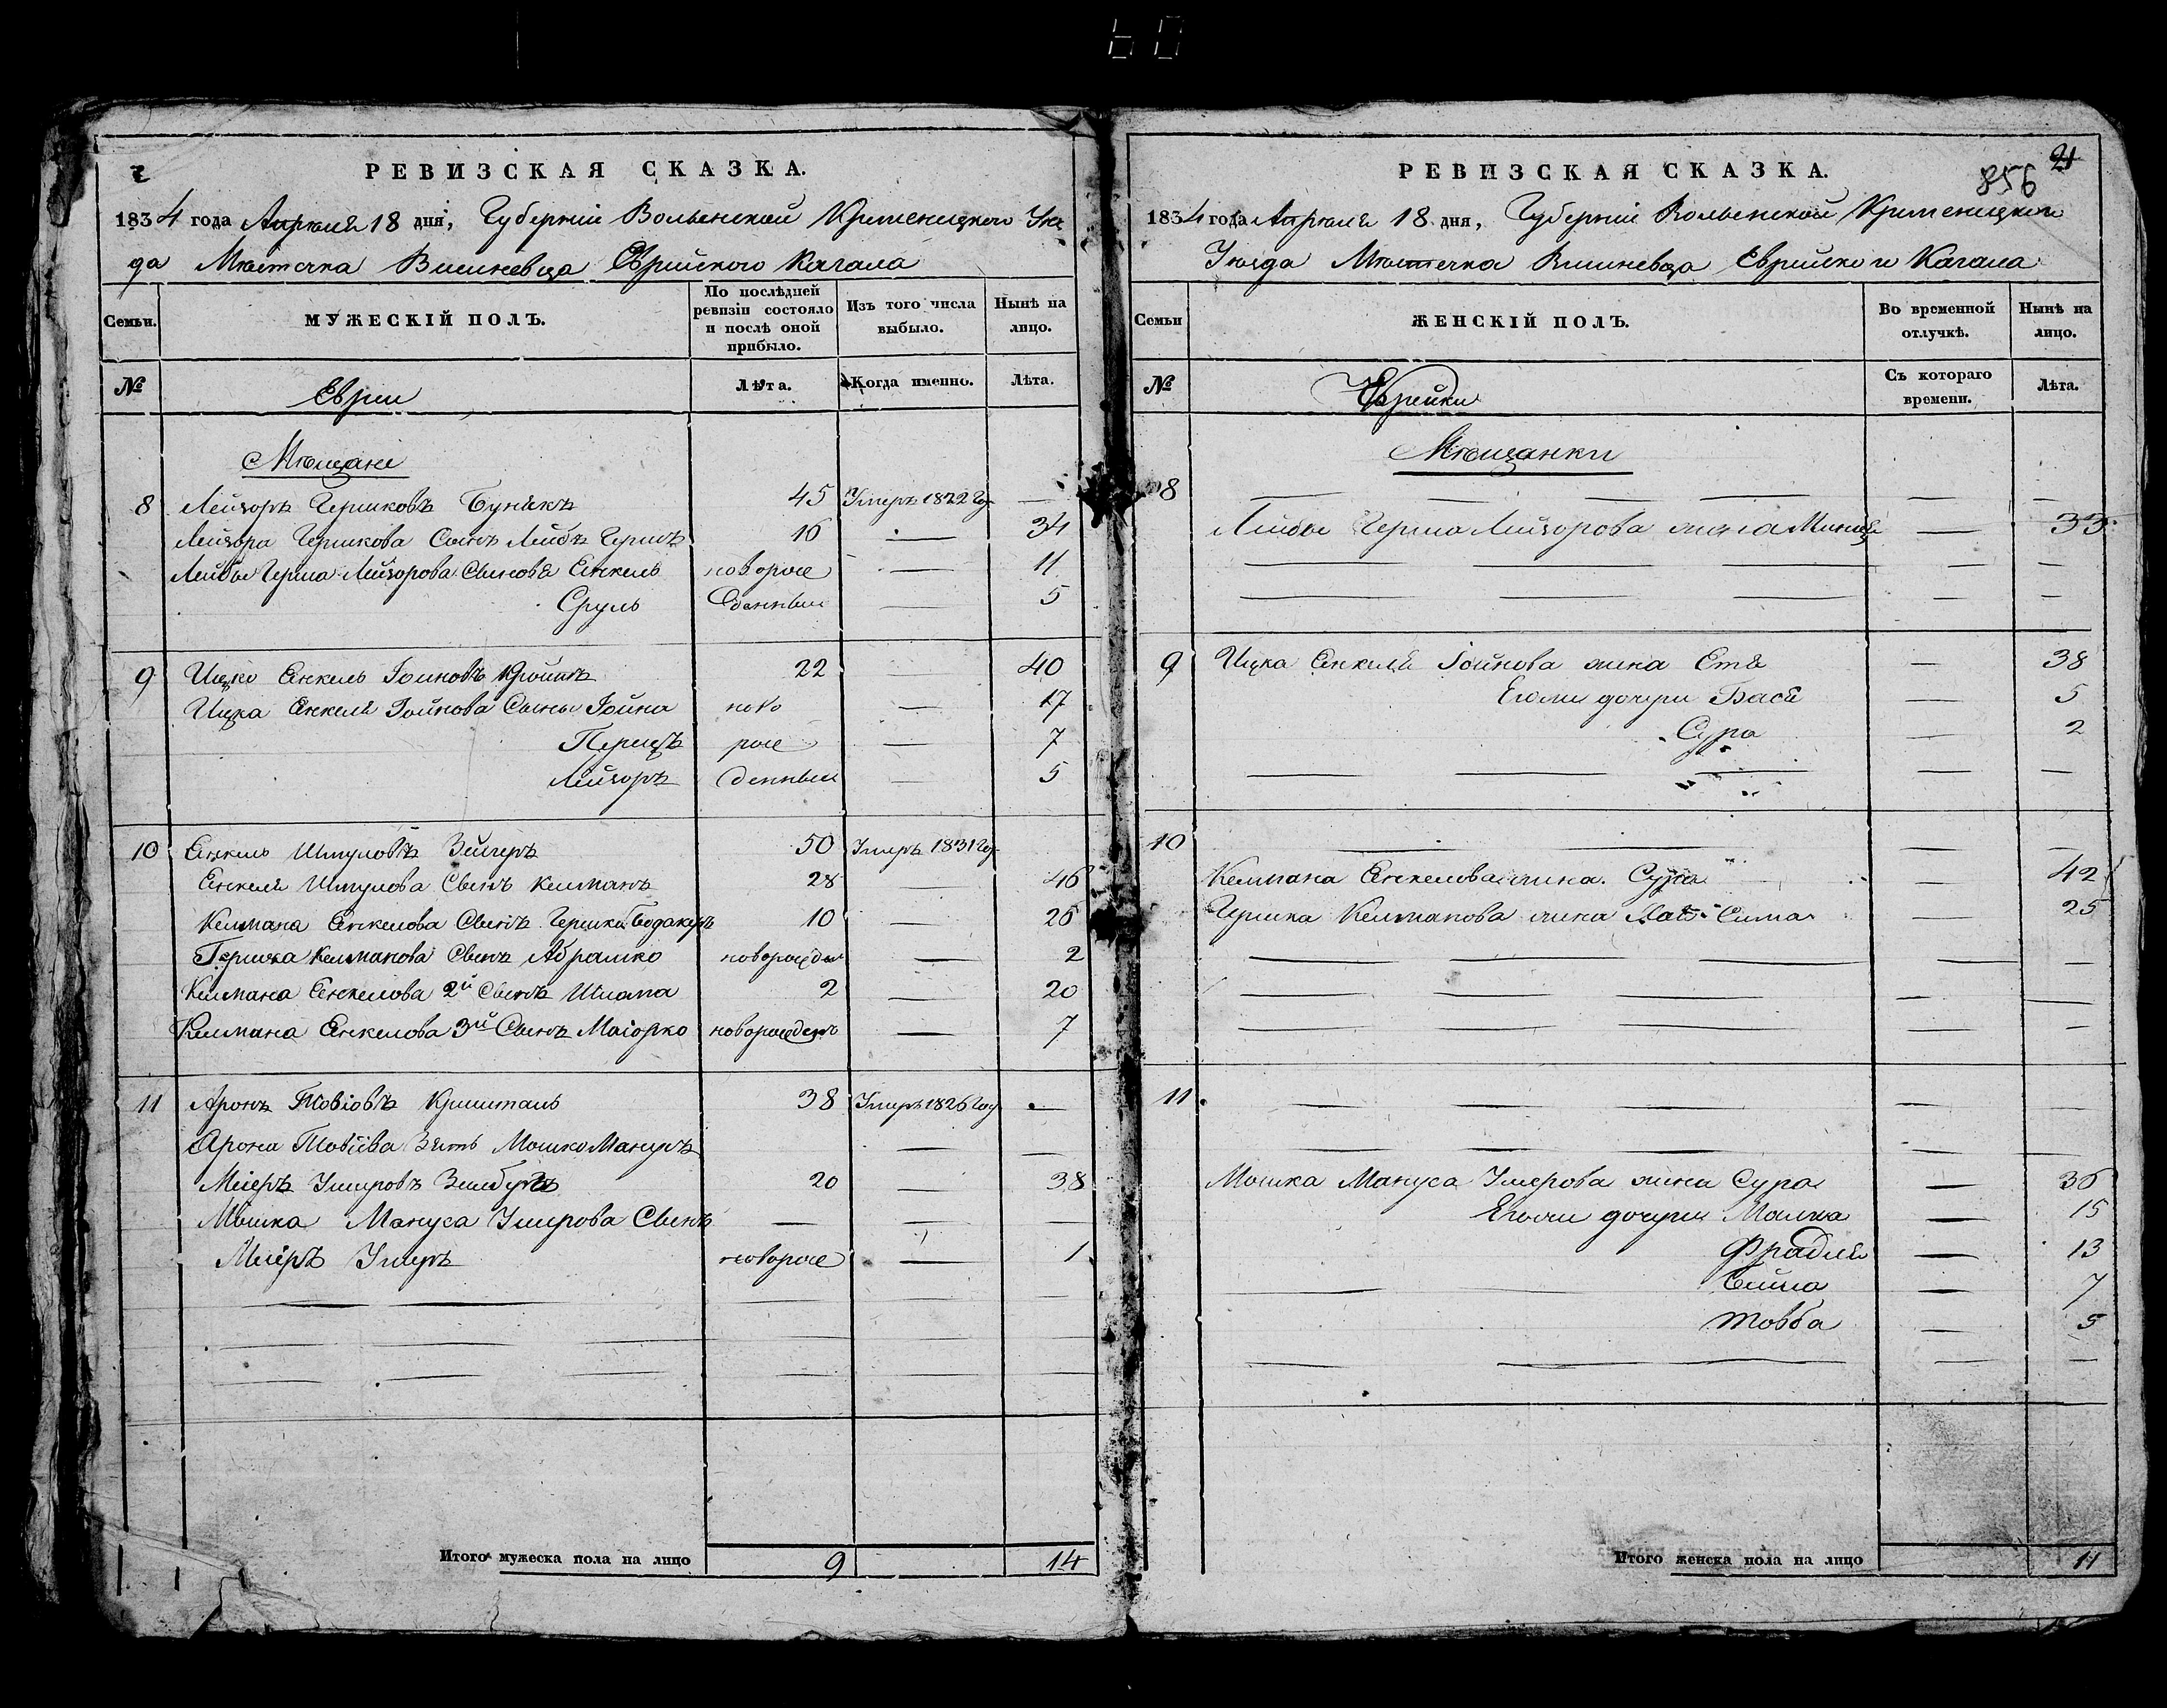 РЕВИЗСКАЯ СКАЗКА.
1834 года Апреля 18 дня, Губерніи Волынской Кременецкого Уѣз
да Мѣстечка Вишневца Еврейского Кагала
Семьи. МУЖЕСКІЙ ПОЛЪ. По послѣдней ревизіи состояло и послѣ оной прибыло. Изъ того числа выбыло. Нынѣ на лицо.
№ Евреи Лѣта. Когда именно. Лѣта.
Мѣщане
8 Лейзоръ Гершковъ 45 Умеръ 1822 Го —
Лейзора Гершкова Сынъ Лейбъ Гершъ 16 — 34
Лейбы Герша Лейзорова Сыновя Енкель новорож — 11
Сруль денные — 5
9 Ицко Енкель Іойновъ 22 — 40
Ицка Енкеля Іойнова Сыны Іойна ново — 17
Перецъ рож — 7
Лейзоръ денные — 5
10 Енкель Шмуловъ Зейгеръ 50 Умеръ 1831 Го
Енкеля Шмулова Сынъ Келманъ 28 46
Келмана Енкелова Сынъ Гершко 10 — 26
Гершка Келманова Сынъ Абрамко новорожден — 2
Келмана Енкелова 2й Сынъ Шлама 2 — 20
Келмана Енкелова 3й Сынъ Маіорко новорожденъ — 7
11 Аронъ Товіовъ Кришталь 38 Умеръ 1826 Го —
Арона Товіева Зять Мошко Манусъ — —
Меіеръ Умеровъ 20 — 38
Мошка Мануса Умерова Сынъ — — —
Меіеръ Умеръ новорож — 1
Итого мужеска пола на лицо 9 14
РЕВИЗСКАЯ СКАЗКА.
856 21
1834 года Апреля 18 дня, Губерніи Волынской Кременецкого
Уѣзда Мѣстечка Вишневца Еврейского Кагала
Семьи МУЖЕСКІЙ ЖЕНСКІЙ ПОЛЪ. Во временной отлучкѣ. Нынѣ на лицо.
№ Еврейки Съ котораго времени. Лѣта.
Мѣщанки
8 — — — — — —
Лейбы Герша Лейзорова жена — 33
9 Ицка Енкеля Іойнова жена Етя — 38
Его же дочери Бася — 5
Сура — 2
10 — — — — —
Келмана Енкелова жена Сура — 42
Гершка Келманова жена Сима — 25
11 — — — — —
Мошка Мануса Умерова жена Сура — 36
Его же дочери Малка — 15
Фрадля — 13
Бейла — 7
Товба — 5
Итого женска пола на лицо 11